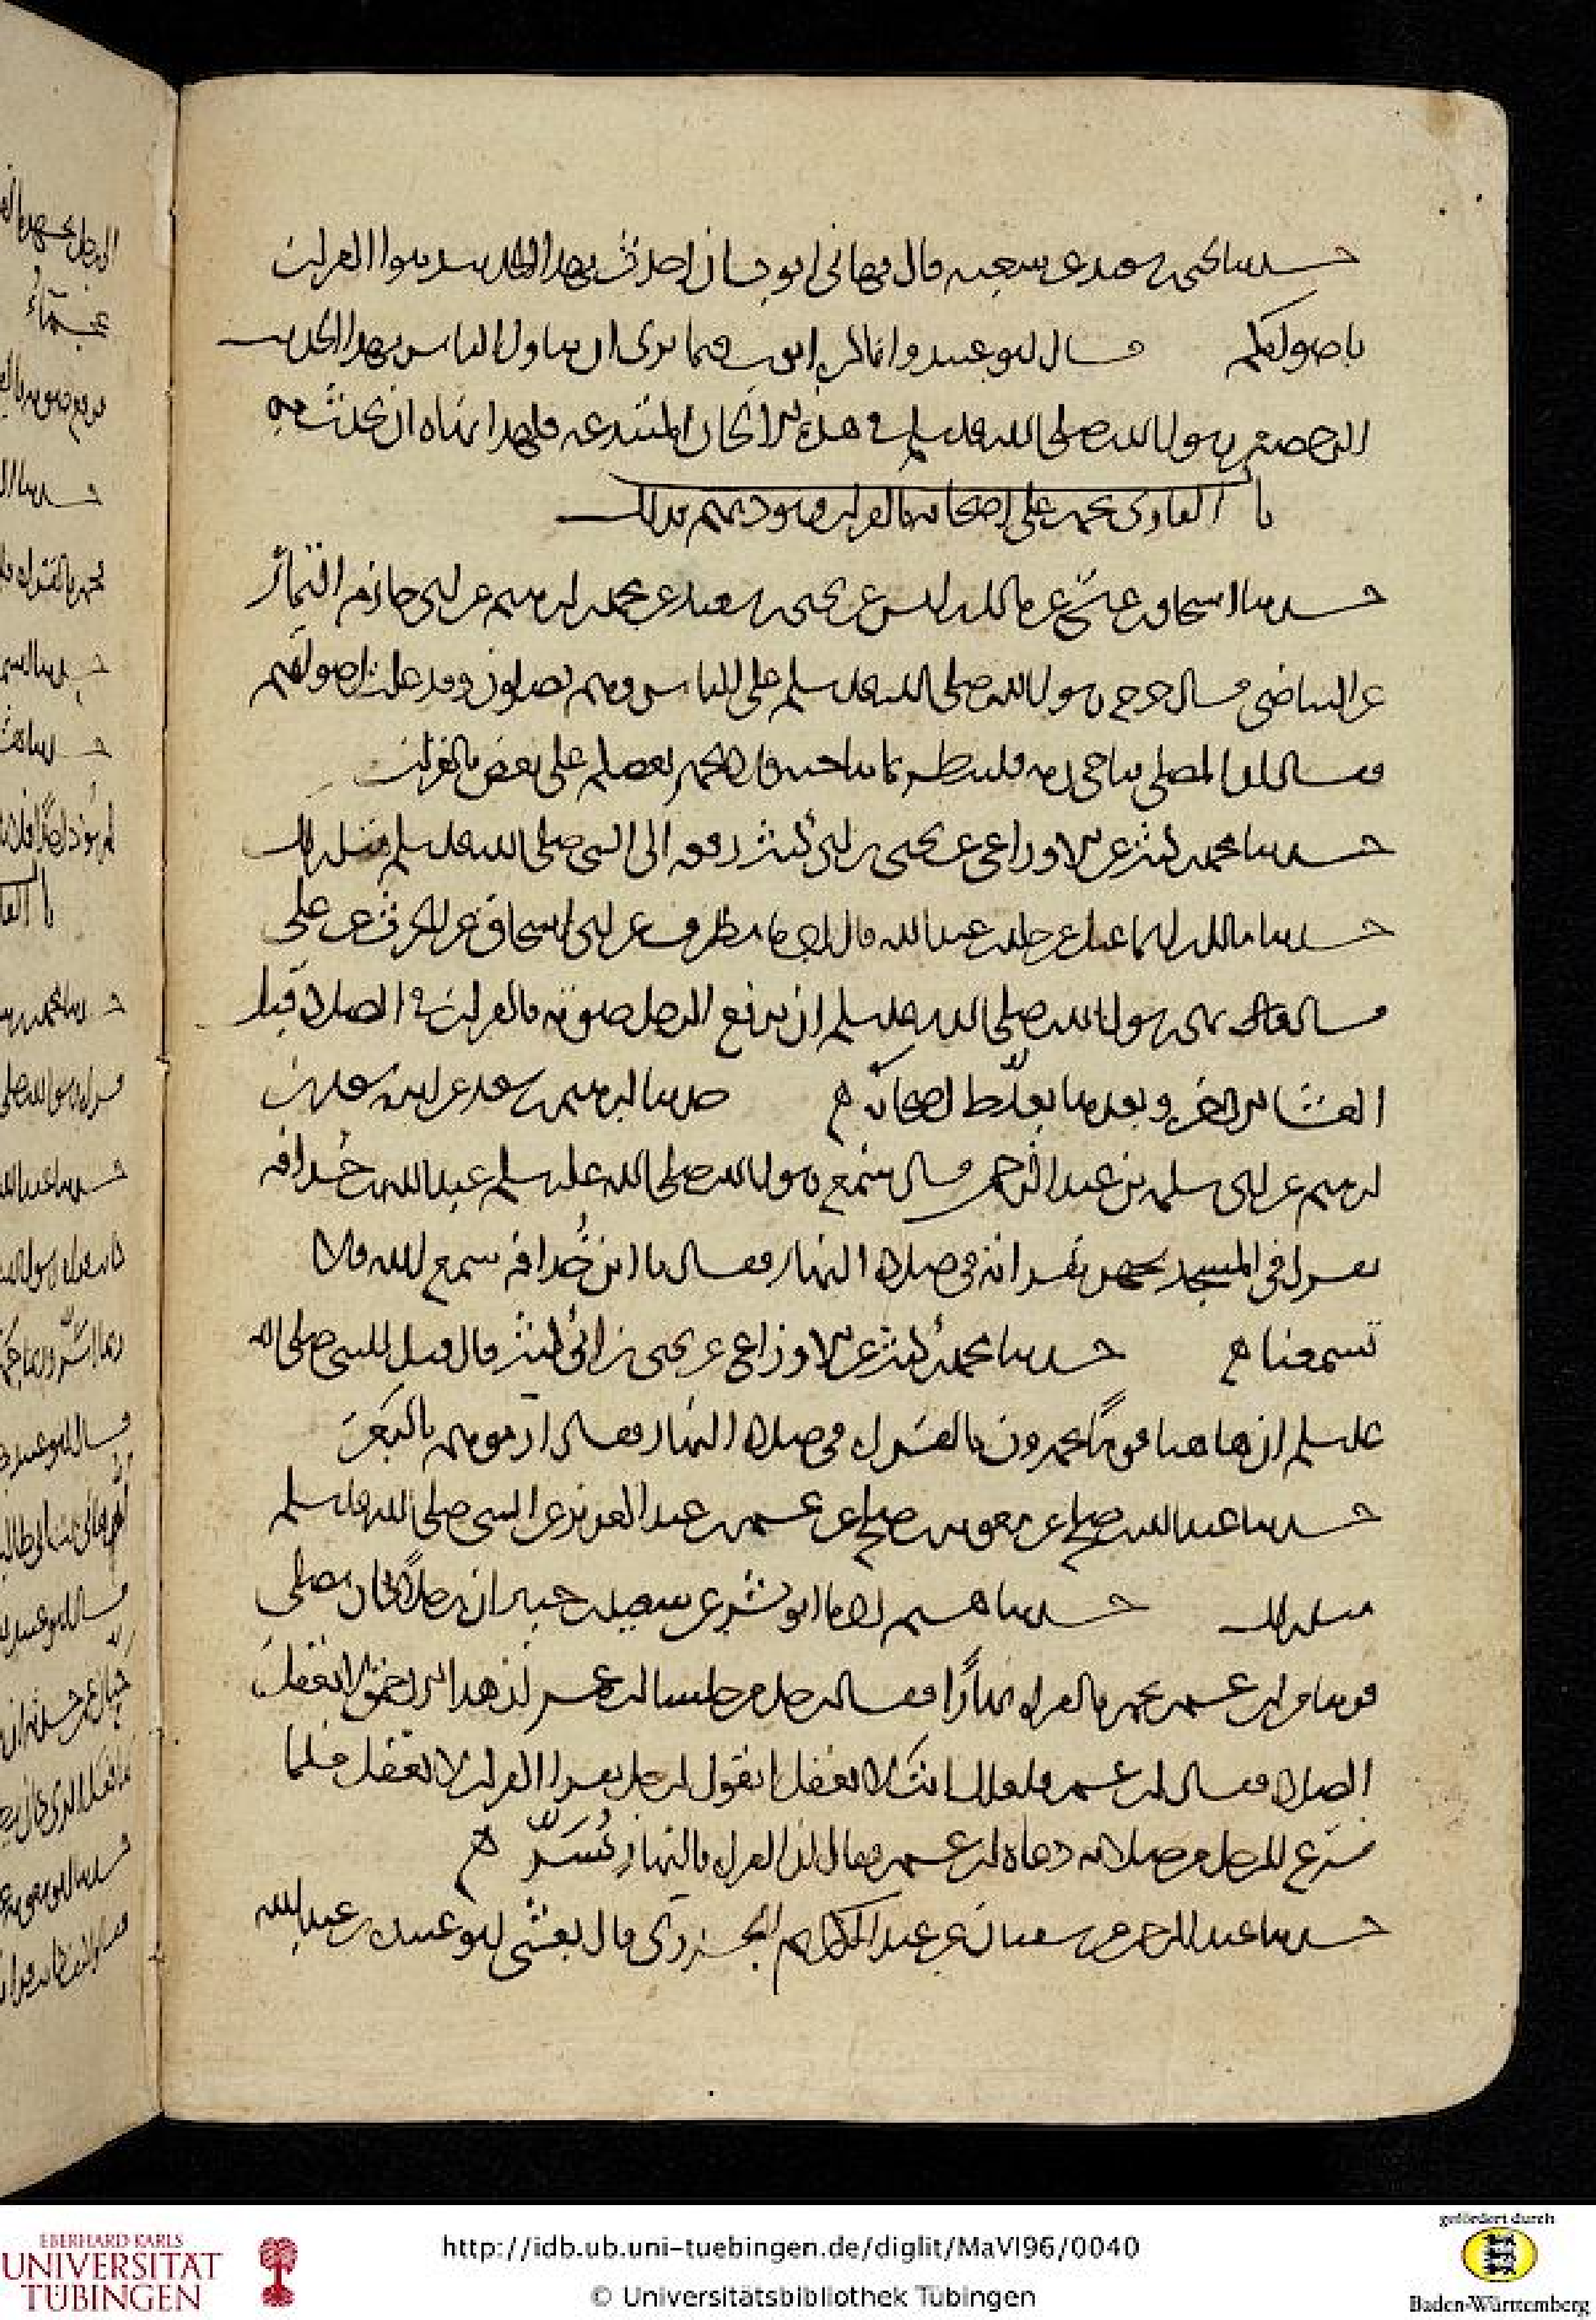 حدثنا يحيى بن سعيد عن شعبة قال نهاني ايوب ان احدث بهذا الحديث زينوا القران
باصواتكم قال ابو عبيد وانما كره ايوب فيما نرى ان يتاول الناس بهذا الحديث
الرخصة من رسول الله صلى الله عليه وسلم في هذه الالحان المبتدعة فلهذا نهاه ان يحدث به
باب القارئ يجهر على اصحابه بالقران فيوذيهم بذلك
حدثنا اسحاق بن عيسى عن مالك بن انس عن يحيى بن سعيد عن محمد بن ابرهيم عن ابي حازم التمار
عن البياضي قال خرج رسول الله صلى الله عليه وسلم على الناس وهم يصلون وقد علت اصواتهم
فقال ان المصلي يناجي ربه فلينظر بما يناجيه ولا يجهر بعضكم على بعض بالقران
حدثنا محمد بن كثير عن الاوزاعي عن يحيى بن ابي كثير رفعه الى النبي صلى الله عليه وسلم مثل ذلك
حدثنا مالك بن اسماعيل عن خالد بن عبد الله قال انا مطرف عن ابي اسحاق عن الحرث عن علي
قال نهى رسول الله صلى الله عليه وسلم ان يرفع الرجل صوته بالقران في الصلاة قبل
العشاء الاخرة وبعدها يغلط اصحابه ه حدثنا ابرهيم بن سعد عن ابيه سعد بن
ابرهيم عن ابي سلمة بن عبد الرحمن قال سمع رسول الله صلى الله عليه وسلم عبد الله بن حذافة
يقرا في المسجد يجهر بقراته في صلاة النهار فقال يا ابن حذافة سمع الله ولا
تسمعنا ه حدثنا محمد بن كثير عن الاوزاعي عن يحيى بن ابي كثير قال قيل للنبي صلى الله
عليه وسلم ان هاهنا قوما يجهرون بالقراة في صلاة النهار فقال ارموهم بالبعر
حدثنا عبد الله بن صالح عن معوية بن صالح عن عمر بن عبد العزيز عن النبي صلى الله عليه وسلم
مثل ذلك حدثنا هشيم قال انا ابو بشر عن سعيد بن جبير ان رجلا كان يصلي
قريبا من ابن عمر يجهر بالقراة نهارا فقال رجل من جلسا ابن عمر ان هذا الاحمق لا يعقل
الصلاة فقال ابن عمر فلعلك انت لا تعقل اتقول لرجل يقرا القران لا يعقل فلما
فرغ الرجل من صلاته دعاه ابن عمر وقال ان القراة بالنهار تسر ه
حدثنا عبد الرحمن عن سفيان عن عبد الكريم الجزري قال تعشى ابو عبيدة بن عبد الله
http://idb.ub.uni-tuebingen.de/diglit/MaVI96/0040
© Universitätsbibliothek Tübingen
EBERHARD KARLS
UNIVERSITÄT
TÜBINGEN
gefördert durch
Baden-Württemberg